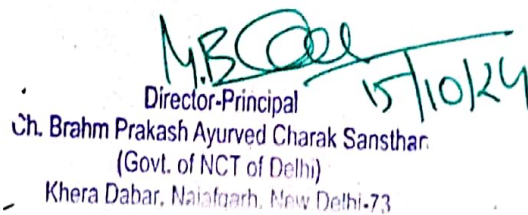 15/10/24
Director-Principal
Ch. Brahm Prakash Ayurved Charak Sansthan
(Govt. of NCT of Delhi)
Khera Dabar, Najafgarh, New Delhi-73